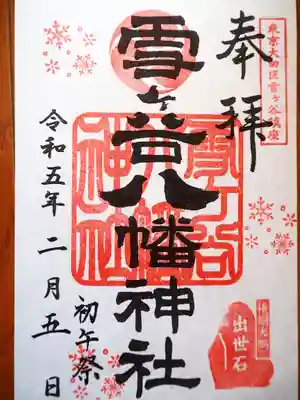 奉拝
東京大田区雪ヶ谷鎮座
雪ヶ谷八幡神社
雪ヶ谷八幡神社
令和五年二月五日
初午祭
出世石